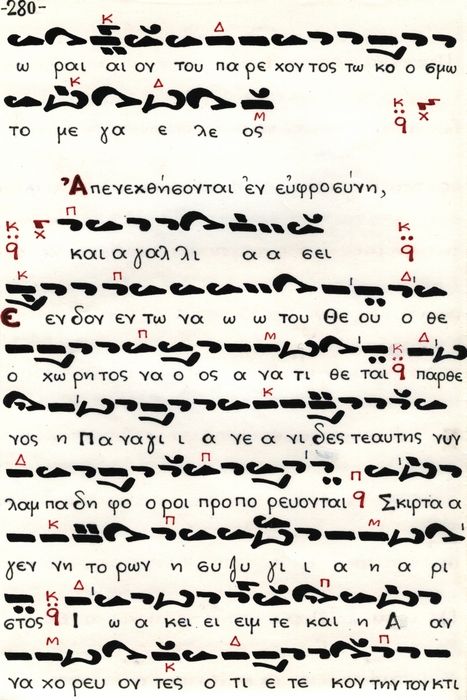 -280-
ω ραι αι ον του πα ρε χον τος τω κο ο σμω
το με γα ε λε ος
Ἀπενεχθήσονται ἐν εὐφροσύνῃ,
και α γαλ λι α α σει
Ε εν δον εν τω να ω ω του Θε ου ο θε
ο χω ρη τος να ο ος α να τι θε ται παρθε
νος η Πα να γι ι α νε α νι δες τε αυ της νυν
λαμ πα δη φο ο ροι προ πο ρε υονται Σκιρτα α
γεν νη το ρων η συ ζυ γι ι α η α ρι
στος Ι ω α κει ειμ τε και η Α αν
να χο ρευ ον τες ο τι ε τε κον την του κτι